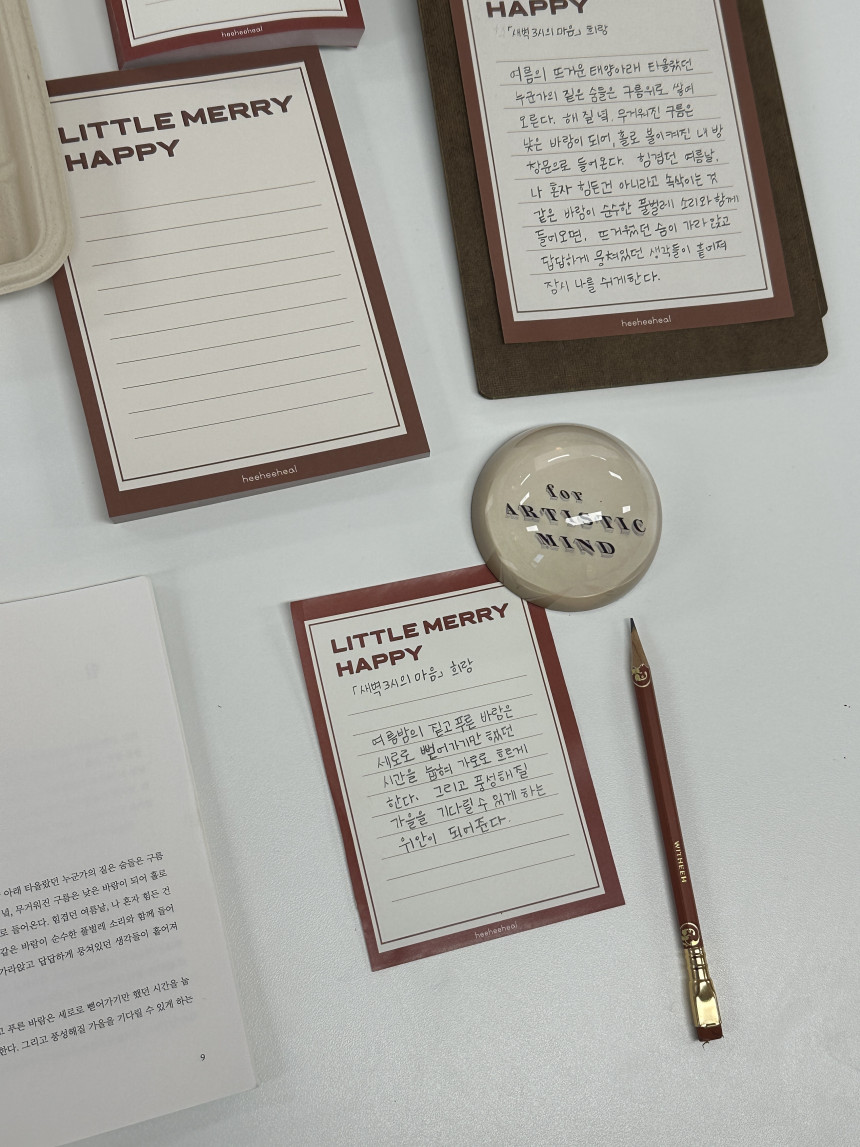 heeheeheal
LITTLE MERRY
HAPPY
heeheeheal
HAPPY
「새벽 3시의 마음」 희랑
여름의 뜨거운 태양아래 타올랐던
누군가의 짙은 숨들은 구름위로 쌓여
오른다. 해 질 녘, 무거워진 구름은
낮은 바람이 되어, 홀로 불이켜진 내 방
창문으로 들어온다. 힘겹던 여름날,
나 혼자 힘든건 아니라고 속삭이는 것
같은 바람이 순수한 풀벌레 소리와 함께
들어오면, 뜨거웠던 숨이 가라 앉고
답답하게 뭉쳐있던 생각들이 흩어져
잠시 나를 쉬게한다.
heeheeheal
for
ARTISTIC
MIND
LITTLE MERRY
HAPPY
「새벽 3시의 마음」 희랑
여름밤의 짙고 푸른 바람은
세로로 뻗어가기만 했던
시간을 눕혀 가로로 흐르게
한다. 그리고 풍성해질
가을을 기다릴 수 있게 하는
위안이 되어준다.
heeheeheal
WITHEEH
아래 타올랐던 누군가의 짙은 숨들은 구름
녘, 무거워진 구름은 낮은 바람이 되어 홀로
로 들어온다. 힘겹던 여름날, 나 혼자 힘든 건
같은 바람이 순수한 풀벌레 소리와 함께 들어
가라앉고 답답하게 뭉쳐있던 생각들이 흩어져
고 푸른 바람은 세로로 뻗어가기만 했던 시간을 눕
한다. 그리고 풍성해질 가을을 기다릴 수 있게 하는
9